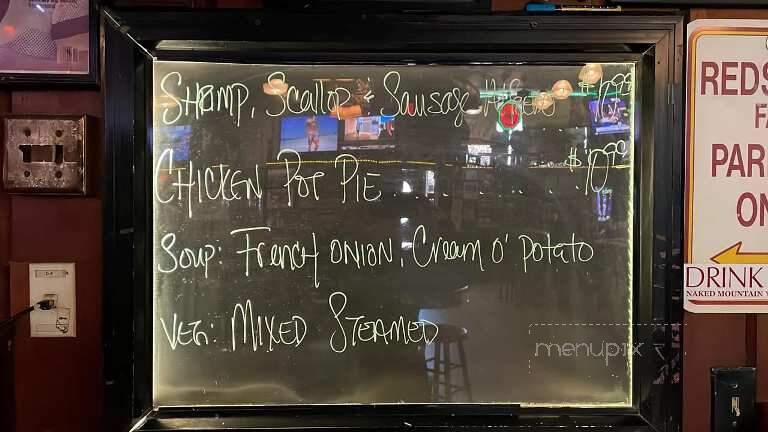 Shrimp, Scallop & Sausage
Chicken Pot Pie ........ $10.99
Soup: French Onion, Cream O' Potato
Veg: Mixed Steamed
menupix
REDS
FA
PAR
ON
DRINK
NAKED MOUNTAIN